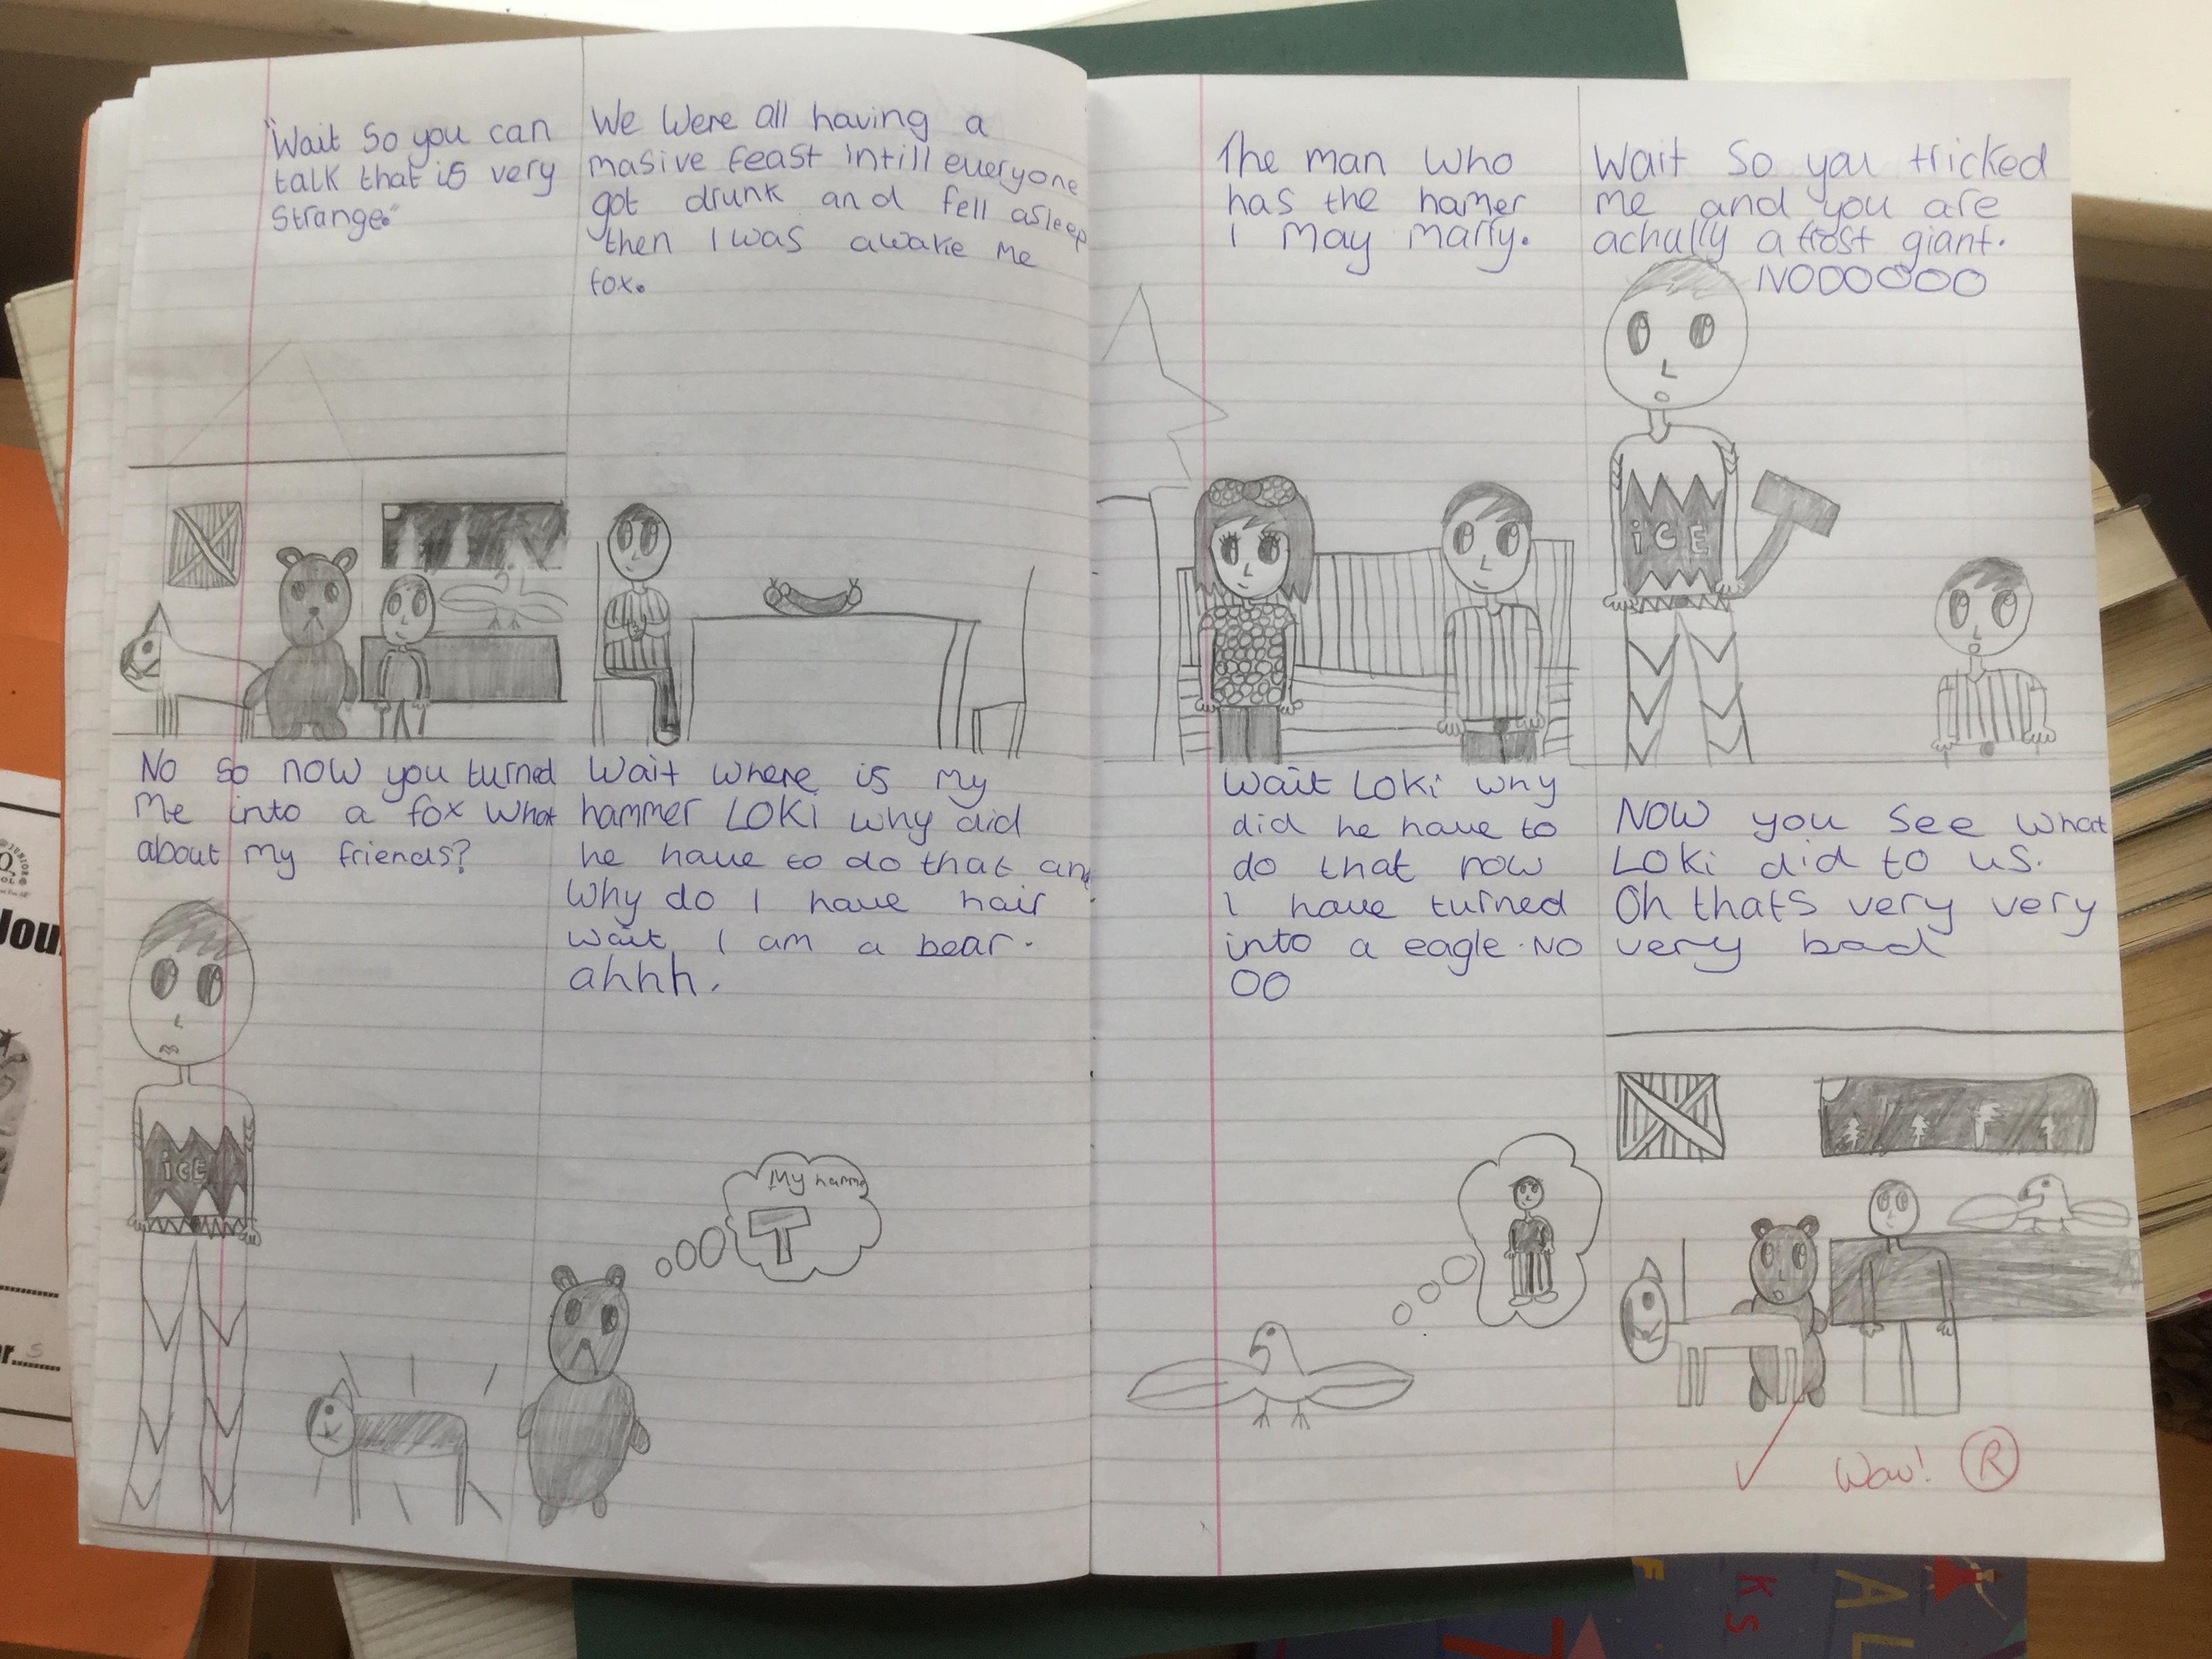 "Wait So you can
talk that is very
Strange."
We Were all having a
masive feast intill everyone
got drunk and fell asleep
then I was awake me
fox.
The man who
has the hamer
I may marry.
Wait So you tricked
me and you are
achully a frost giant.
NOOOOOO
iCE
No so now you turned
Me into a fox What
about my friends?
Wait where is my
hammer LOKi why did
he have to do that and
Why do I have hair
wait I am a bear.
ahhh.
iCE
My hamme
Wait LOKi why
did he have to
do that now
I have turned
into a eagle. NO
OO
NOW you see what
LOKi did to us.
Oh thats very very
very bad
Wow! R
Jou
r.....5
K
S
A
L